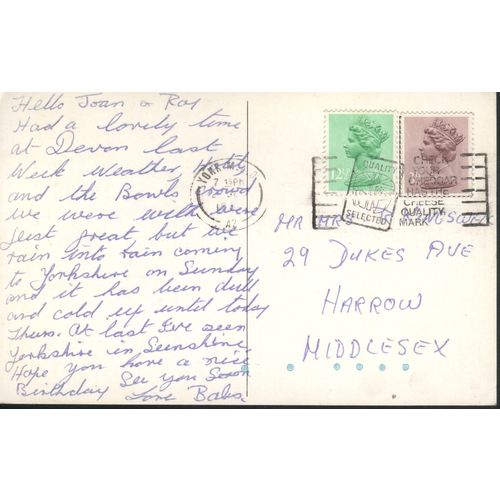 Hello Joan & Ray
Had a lovely time
at Devon last
Week weather
and the Bowls crowd
we were with were
just great but we
rain into rain coming
to Yorkshire on Sunday
and it has been dull
and cold up until today
Thurs. At last I've seen
Yorkshire in Sunshine
Hope you have a nice
Birthday See you Soon
Love Babs.
YORK
7 15PM
QUALITY
SELECTED
CHECK
CHEDDAR
HAS THE
CHEESE
QUALITY
MARK
MR MRS
29 DUKES AVE
HARROW
MIDDLESEX